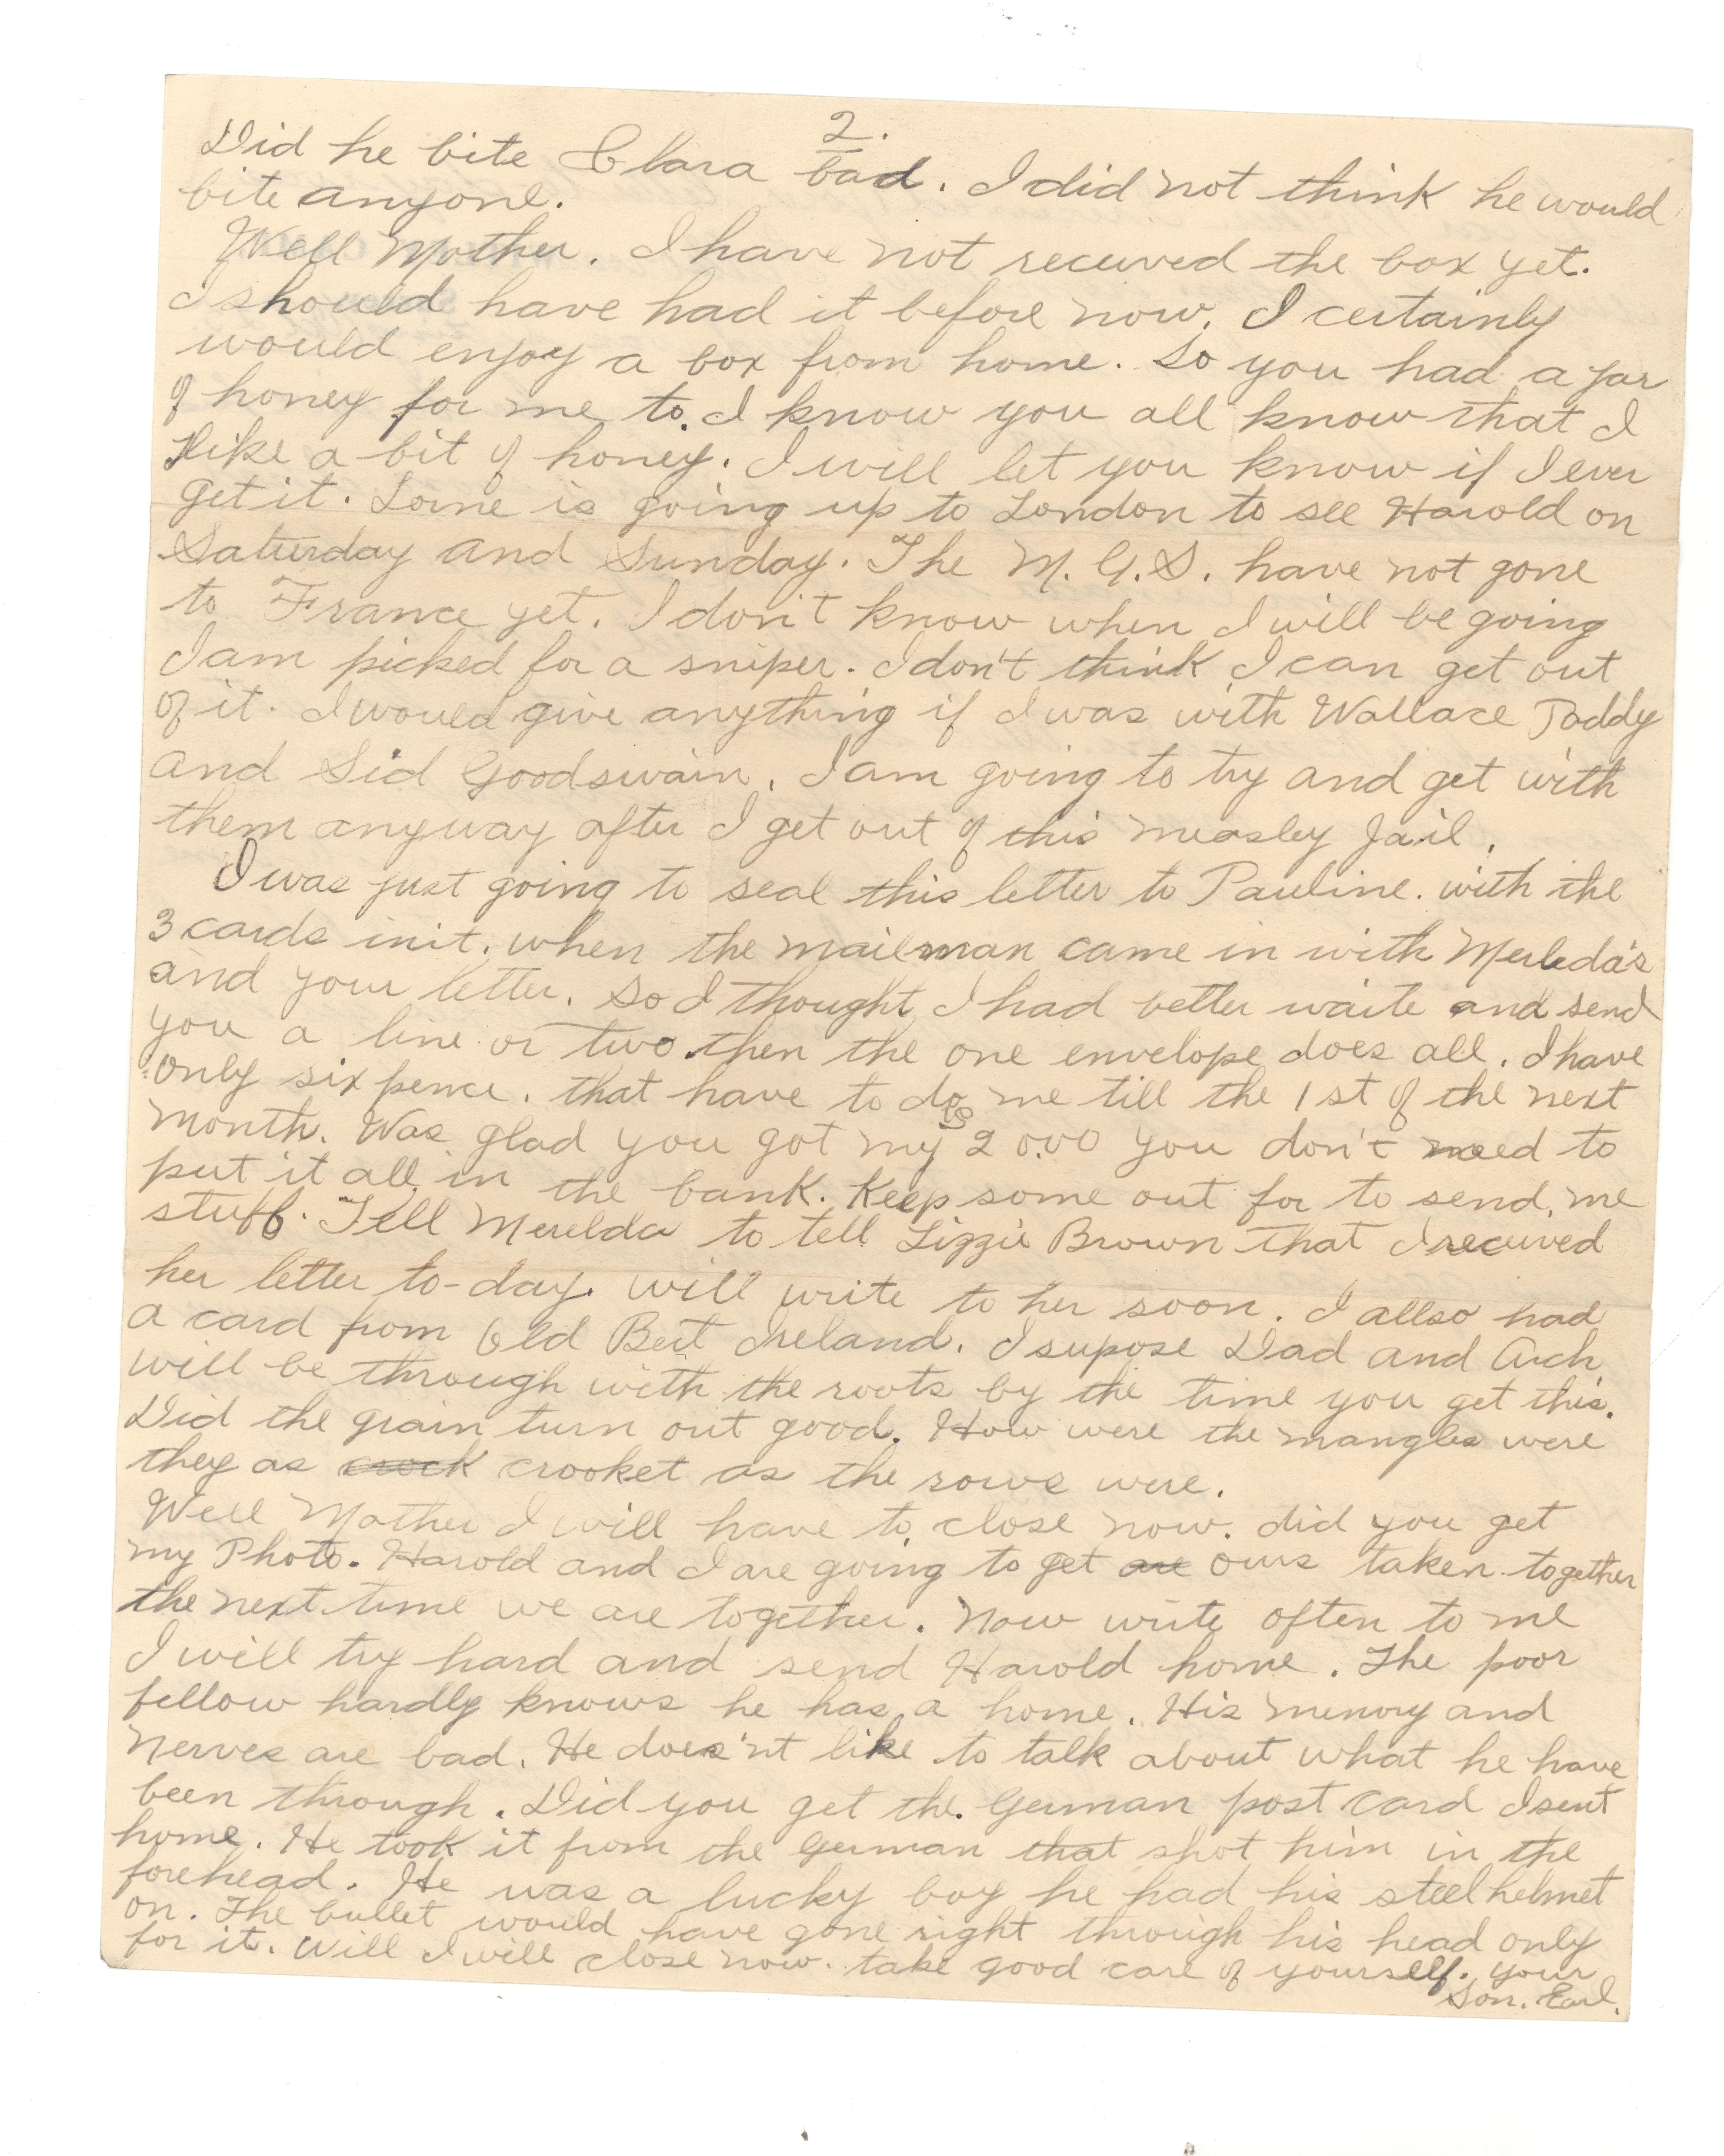 2.
Did he bite Clara bad. I did not think he would
bite anyone.
Well Mother. I have not received the box yet.
I should have had it before now. I certainly
would enjoy a box from home. So you had a jar
of honey for me to. I know you all know that I
like a bit of honey. I will let you know if I ever
get it. Lorne is going up to London to see Harold on
Saturday and Sunday. The M.G.S. have not gone
to France yet. I don't know when I will be going
I am picked for a sniper. I don't think I can get out
of it. I would give anything if I was with Wallace Toddy
and Sid Goodswain. I am going to try and get with
them anyway after I get out of this measley Jail.
I was just going to seal this letter to Pauline. with the
3 cards init. when the mailman came in with Merleda's
and your letter. So I thought I had better waite and send
you a line or two. then the one envelope does all. I have
only six pence. that have to do me till the 1st of the next
month. Was glad you got my $20.00 you don't need to
put it all in the bank. Keep some out for to send me
stuff. Tell Merelda to tell Lizzie Brown that I received
her letter to-day. will write to her soon. I allso had
a card from Old Bert Ireland. I supose Dad and Arch
will be through with the roots by the time you get this.
Did the grain turn out good. How were the mangles were
they as crock crooket as the rows were.
Well Mother I will have to close now. did you get
my Photo. Harold and I are going to get are ours taken together
the next time we are together. Now write often to me
I will try hard and send Harold home. The poor
fellow hardly knows he has a home. His memory and
nerves are bad. He does'nt like to talk about what he have
been through. Did you get the German post card I sent
home. He took it from the German that shot him in the
forehead. He was a lucky boy he had his steel helmet
on. The bullet would have gone right through his head only
for it. Will I will close now. take good care of yourself. your
Son. Earl.